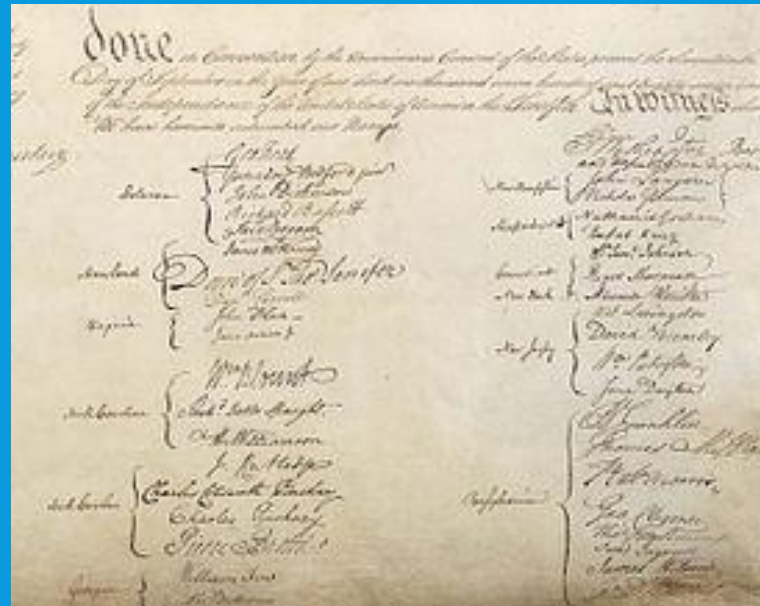 done in Convention by the Unanimous Consent of the States present the Seventeenth
Day of September in the Year of our Lord one thousand seven hundred and
of the Independance of the United States of America the Twelfth In Witness
We have hereunto subscribed our Names
Delaware
Geo: Read
Gunning Bedford jun
John Dickinson
Richard Bassett
Jaco: Broom
Maryland
James McHenry
Dan of St Thos Jenifer
Danl Carroll
Virginia
John Blair
North Carolina
Wm Blount
Richd Dobbs Spaight
Hu Williamson
South Carolina
J. Rutledge
Charles Cotesworth Pinckney
Charles Pinckney
Pierce Butler
Georgia
William Few
Go Washington
and deputy from
New Hampshire
John Langdon
Nicholas Gilman
Massachusetts
Nathaniel Gorham
Rufus King
Connecticut
Wm Saml Johnson
Roger Sherman
New York
Alexander Hamilton
New Jersey
Wil: Livingston
David Brearley
Wm Paterson
Jona: Dayton
Pensylvania
B Franklin
Thomas Mifflin
Robt Morris
Geo. Clymer
Thos FitzSimons
Jared Ingersoll
James Wilson